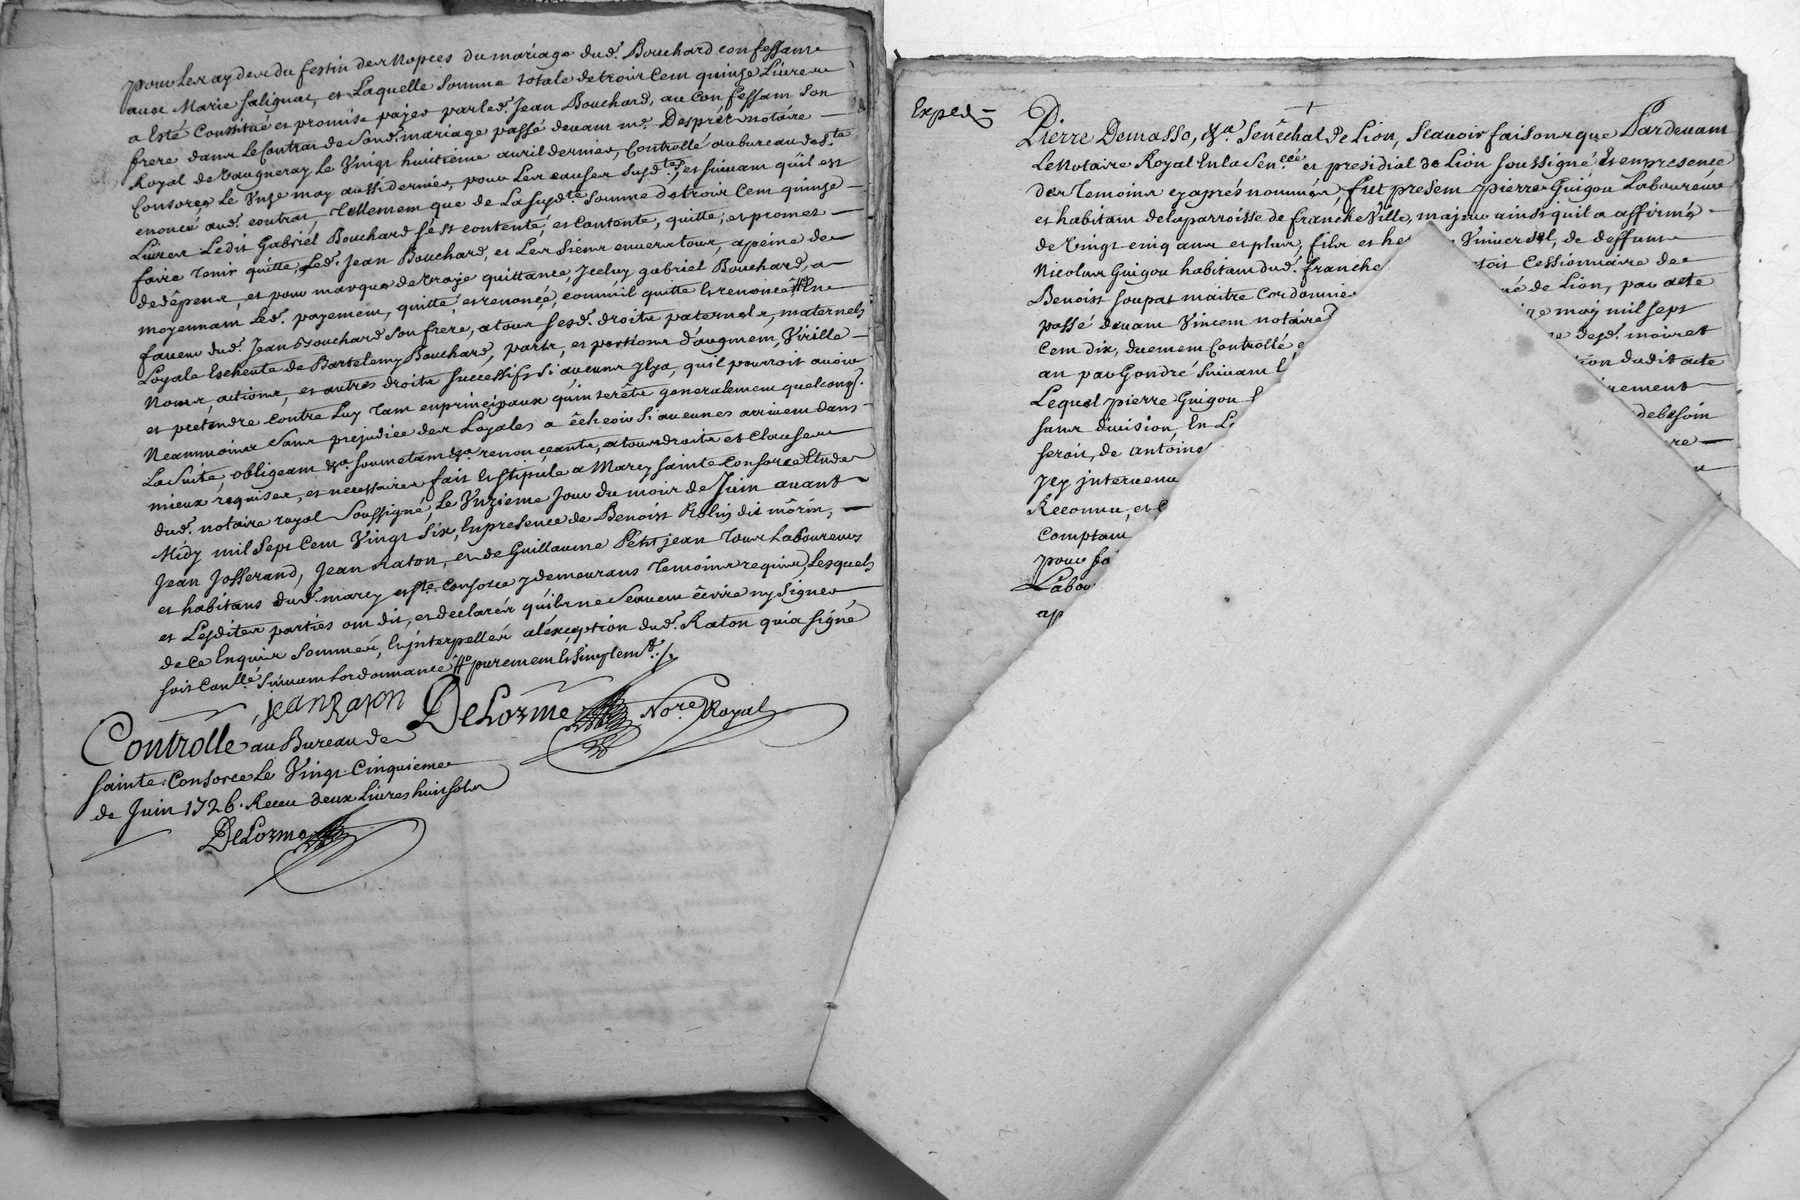 pour Les ayder du festin des Nopces du mariage dud. Bouchard confessant
avec Marie salignat, et Laquelle somme totale de trois Cent quinze Livres
a Esté Constitué et promise payer par led. Jean Bouchard, au Confessant son
frere dans le Contrat de sond. mariage passé devant me. Desprét notaire
Royal de Vaugneray Le Vingt huitieme avril dernier, Controllé au bureau de ste
Consorce Le Unze may aussi dernier, pour Les causes susdtes, et suivant quil est
enoncé aud. contrat, Tellement que de La susdte somme de trois Cent quinze
Livres Ledit Gabriel Bouchard s'est contenté, et Contente, quitte, et promet
faire tenir quitte Led. Jean Bouchard, et Les siens envers tous, apeine de
de dêpens, et pour marque de vraye quittance, Jceluy gabriel Bouchard, a
moyennant Led. payement, quitté, et renoncé, comm'il quitte Et renonce En
faveur dud. Jean Bouchard son frere, a tous sesd. droits paternels, maternels
Loyale Escheute de Bartelemy Bouchard, parts, et portions d'augment, Virille
Noms, actions, et autres droits successifs si aucuns Jl ya, qu'il pourroit avoir
et pretendre contre Luy Tant en principaux qu'interêts generalement quelconqs.
Neammoins sans prejudice des Loyales a êcheoir si aucunes arrivent dans
La suite, obligeant &a. soumetant &a. renonçeants, a tous droits et clauses
mieux requises, et necessaires fait Et stipulé a Marcy sainte Consorce Etude
dud. notaire royal soussigné, Le Unzieme Jour du mois de Juin avant
Midy mil sept Cent Vingt six, En presence de Benoist Robin dit môrin,
Jean Josserand, Jean Raton, et de Guillaume Petit jean Tous Laboureurs
et habitans dud. marcy et ste. Consorce y demeurans Temoins requis, Lesquels
et Lesdites parties ont dit, et declarés qu'ils ne sçavent êcrire ny signer
de ce Enquis sommés, Et jnterpellés a l'exception dud. Raton qui a signé
soit Conllé suivant Lordonnance purement Et simplemt.
jean Raton DeLorme Nore. Royal
Controlle au Bureau de
sainte Consorce Le Vingt Cinquieme
de Juin 1726. Receu deux Livres huit sols
DeLorme
Exped
Pierre Demasso, &a. Senêchal De Lion, Scavoir faisons que Pardevant
Le Notaire Royal En la Sencée et presidial de Lion soussigné Et en presence
des Temoins cy aprés nommés, fut present pierre Guigou Laboureur
et habitant de la parroisse de franche Ville, majeur ainsi quil a affirmé
de Vingt cinq ans et plus, fils et he Universel, de deffunt
Nicolas Guigou habitant dud. franche toit Cessionnaire de
Benoist soupat maitre Cordonnie né de Lion, par acte
passé devant Vincent notaire re may mil sept
Cent dix, duement Controllé e de sd. moiret
an par Gondré suivant l tion dudit acte
Lequel pierre Guigou l irement
sans division, En L de besoin
seroit, de antoine re
jcy jntervenu
Reconnu, et C
Comptant
pour fa
Labou
ap